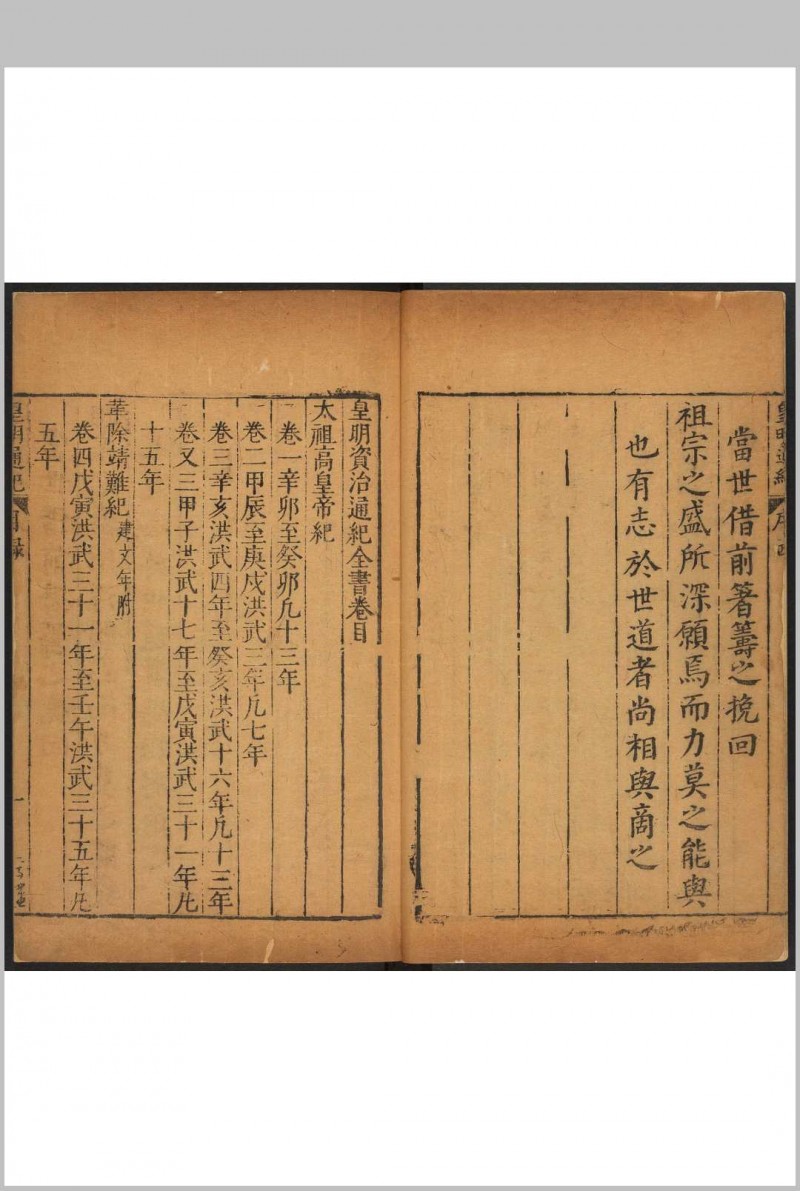 皇明通紀
序
當世借前箸籌之挽回
祖宗之盛所深願焉而力莫之能與
也有志於世道者尚相與商之
皇明資治通紀全書卷目
太祖高皇帝紀
卷一辛卯至癸卯凢十三年
卷二甲辰至庚戌洪武三年凢七年
卷三辛亥洪武四年至癸亥洪武十六年凢十三年
卷又三甲子洪武十七年至戊寅洪武三十一年凢
十五年
革除靖難紀建文年附
卷四戊寅洪武三十一年至壬午洪武三十五年凢
五年
皇明通紀
目錄
一